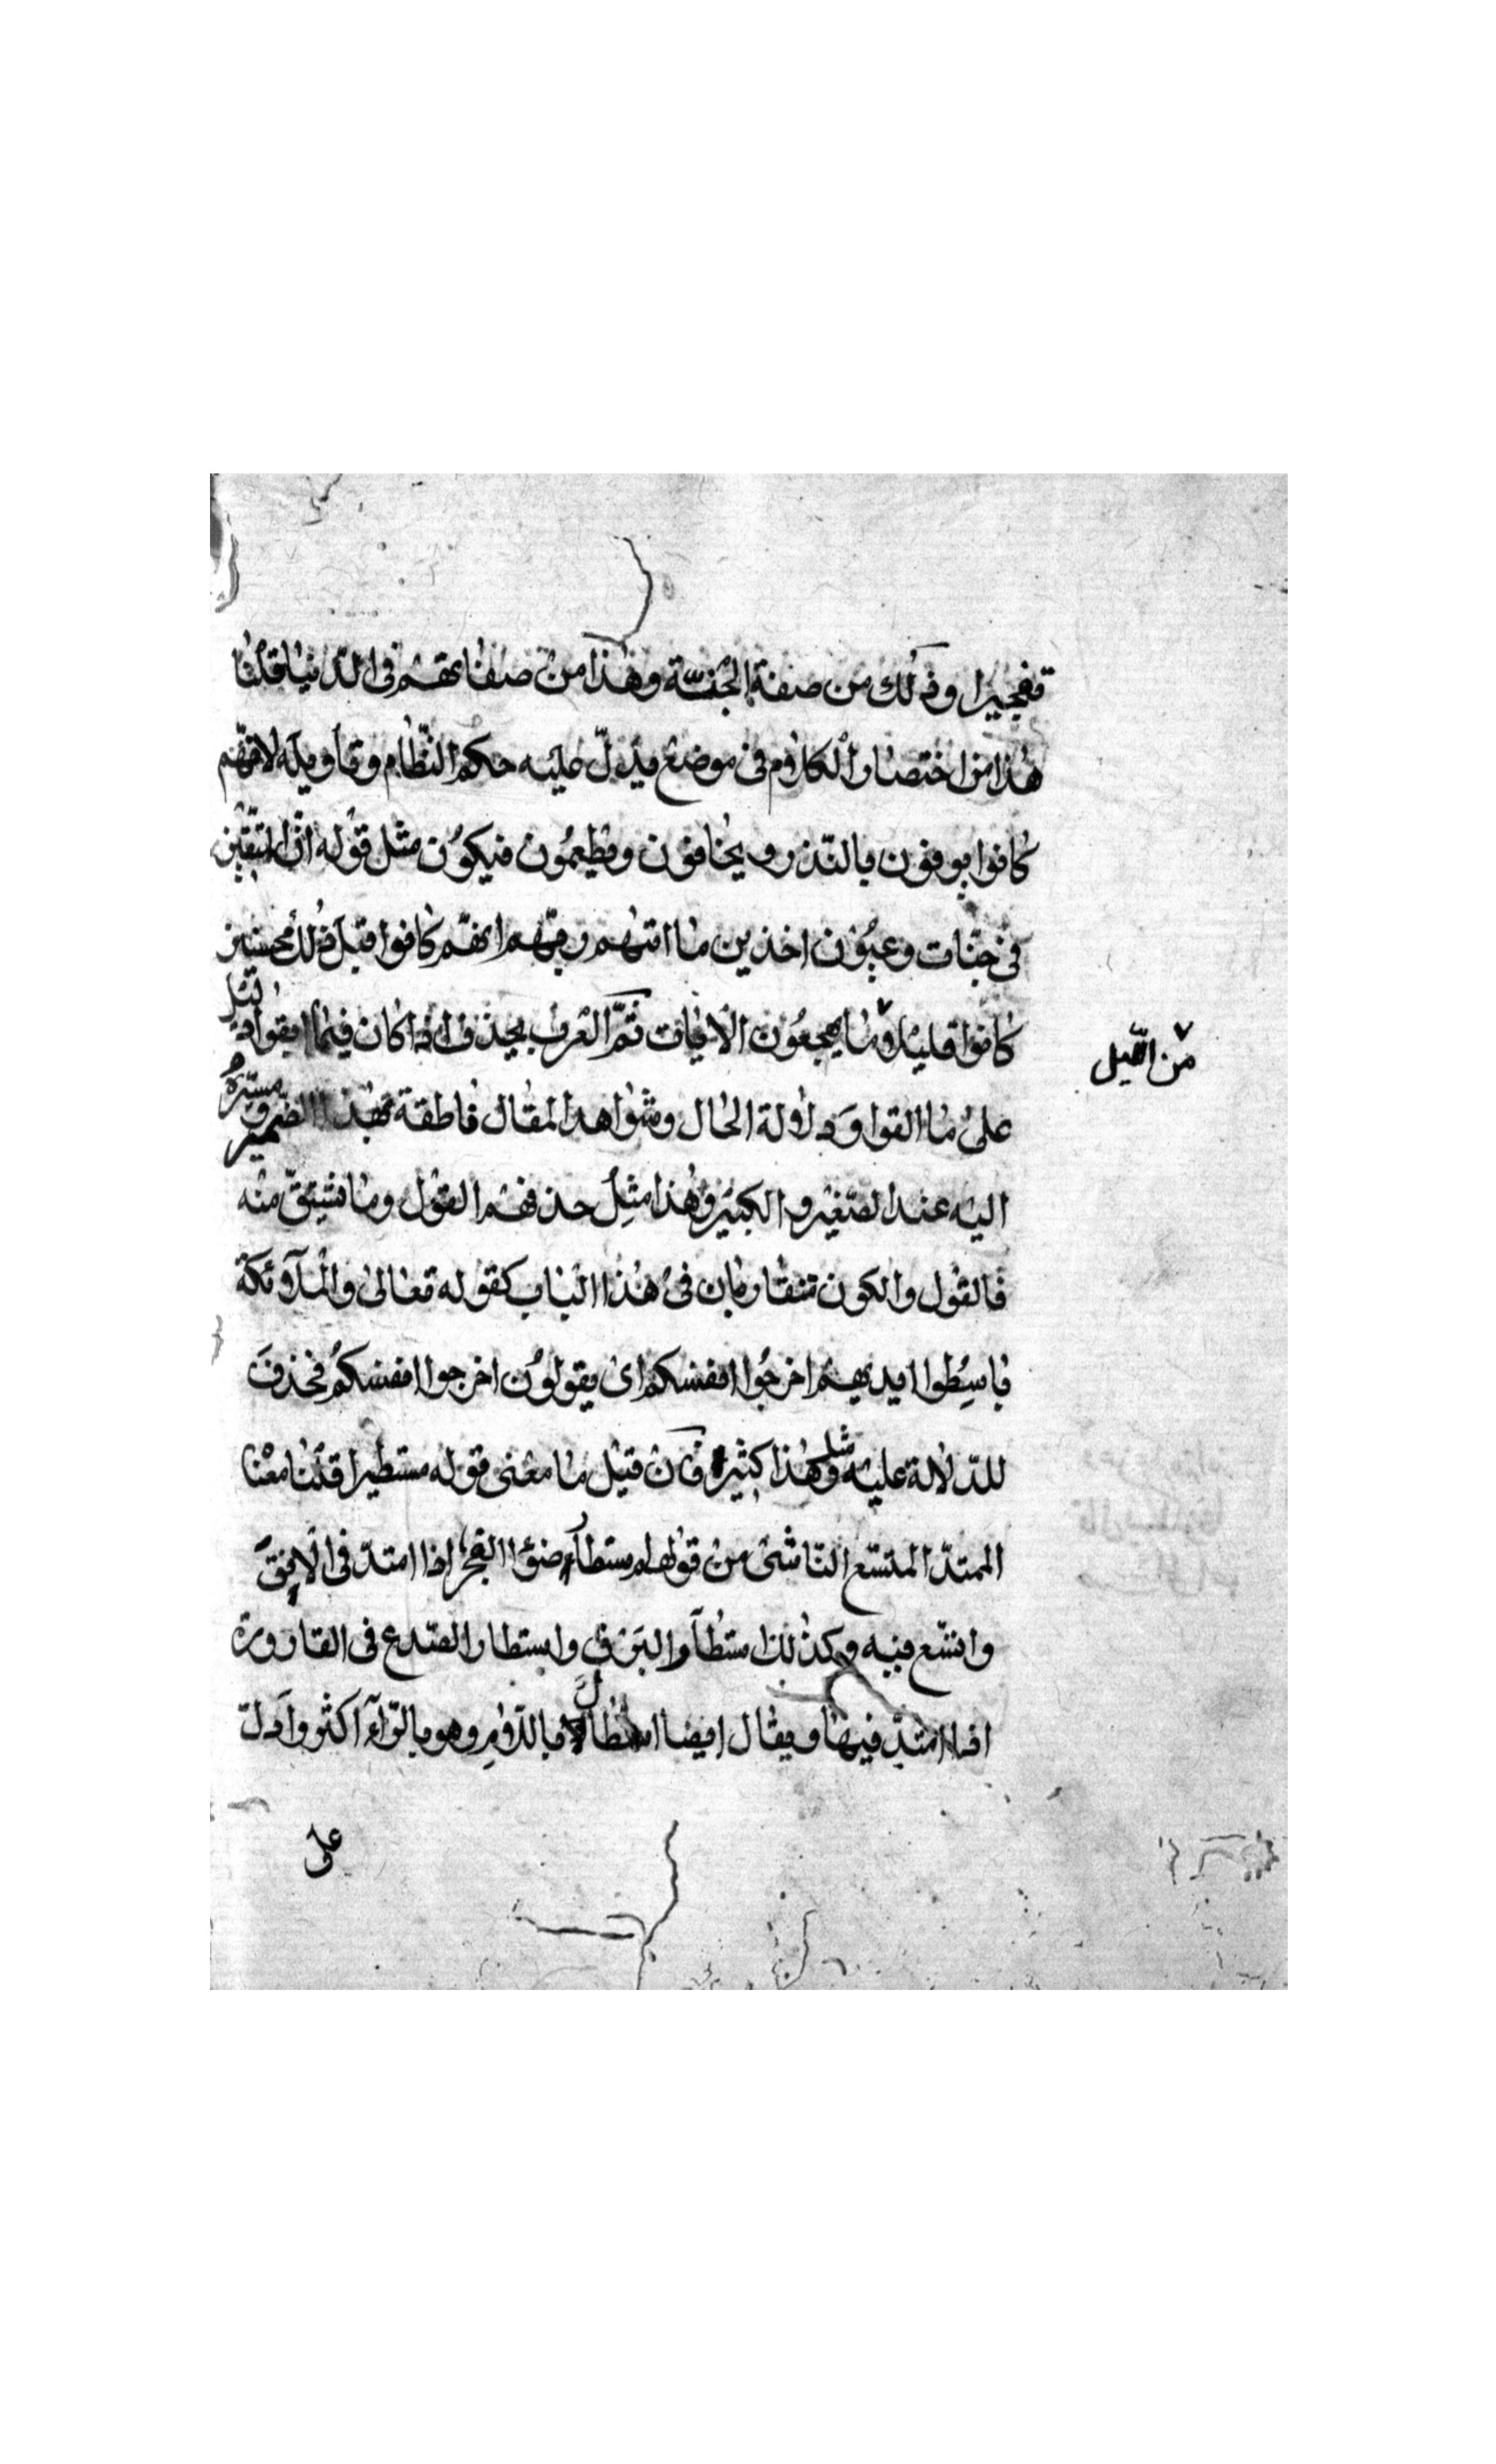 تفجيرا وذلك من صفة الجنّة وهذا من صفاتهم فى الدّنيا قلنا
هذا من اختصار الكلام فى موضع يدلّ عليه حكم النّظام وتأويله لانّهم
كانوا يوفون بالنّذر ويخافون ويطعمون فيكون مثل قوله انّ المتّقين
فى جنّات وعيون اخذين ما اتيهم ربّهم انّهم كانوا قبل ذلك محسنين
كانوا قليلا ما يهجعون الآيات ثمّ العرب يحذف اذا كان فيما ابقوا دليل
من اللّيل
على ما القوا ودلالة الحال وشواهد المقال ناطقة بهذا الضمير
اليه عند الصّغير والكبير وهذا مثل حذفهم القول وما نشتقّ منه
فالقول والكون تتقاربان فى هذا الباب كقوله تعالى والملآئكة
باسِطوا ايديهم اخرجوا انفسكم اى يقولون اخرجوا انفسكم فحذف
للدّلالة عليه ومثل هذا كثير فان قيل ما معنى قوله مستطيرا قلنا معنا
الممتدّ المتّسع النّاشئ من قولهم استطار ضوء الفجر اذا امتدّ فى الافق
واتّسع فيه وكذلك استطار البرق واستطار الصّدع فى القارورة
اذا امتدّ فيها ويقال ايضا استطال باللّام وهو بالرّآء اكثر وادلّ
على